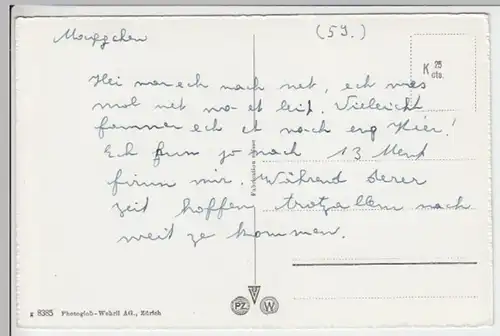 (59.)
K 25 cts.
Hei war ech nach net, ech wees
mol net wo et leit. Vieleicht
fannen ech et nach eng Kier!
Ech hun jo nach 13 Ment
firun mir. Während derer
Zeit hoffen trotzallem nach
weit ze kommen.
PZ W
g 8385 Photoglob-Wehrli AG., Zürich